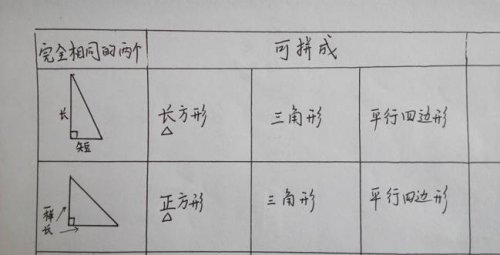 完全相同的两个 可拼成
长 短 长方形 三角形 平行四边形
一样长 正方形 三角形 平行四边形